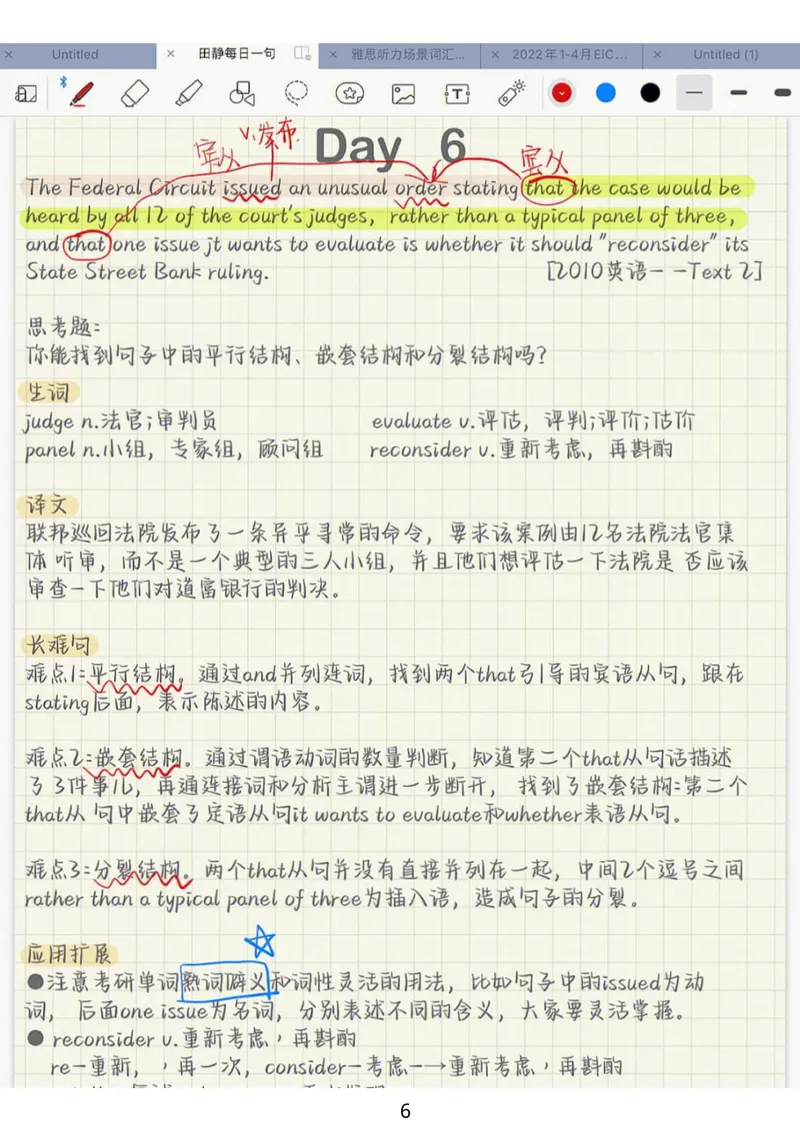 Untitled
田静每日一句
雅思听力场景词汇...
2022年1-4月EIC...
Untitled (1)
宾从 v.发布 宾从
Day 6
The Federal Circuit issued an unusual order stating that the case would be
heard by all 12 of the court's judges, rather than a typical panel of three,
and that one issue jt wants to evaluate is whether it should "reconsider" its
State Street Bank ruling. [2010英语一 -Text 2]
思考题:
你能找到句子中的平行结构、嵌套结构和分裂结构吗?
生词
judge n.法官;审判员 evaluate v.评估，评判;评价;估价
panel n.小组，专家组，顾问组 reconsider v.重新考虑，再斟酌
译文
联邦巡回法院发布了一条异乎寻常的命令，要求该案例由12名法院法官集
体 听审，而不是一个典型的三人小组，并且他们想评估一下法院是 否应该
审查一下他们对道富银行的判决。
长难句
难点1:平行结构。通过and并列连词，找到两个that引导的宾语从句，跟在
stating后面，表示陈述的内容。
难点2:嵌套结构。通过谓语动词的数量判断，知道第二个that从句话描述
了3件事儿，再通连接词和分析主谓进一步断开， 找到了嵌套结构:第二个
that从 句中嵌套了定语从句it wants to evaluate和whether表语从句。
难点3:分裂结构。两个that从句并没有直接并列在一起，中间2个逗号之间
rather than a typical panel of three为插入语，造成句子的分裂。
应用扩展
●注意考研单词熟词僻义和词性灵活的用法，比如句子中的issued为动
词， 后面one issue为名词，分别表述不同的含义，大家要灵活掌握。
● reconsider v.重新考虑，再斟酌
re—重新，，再一次，consider—考虑—→重新考虑，再斟酌
6